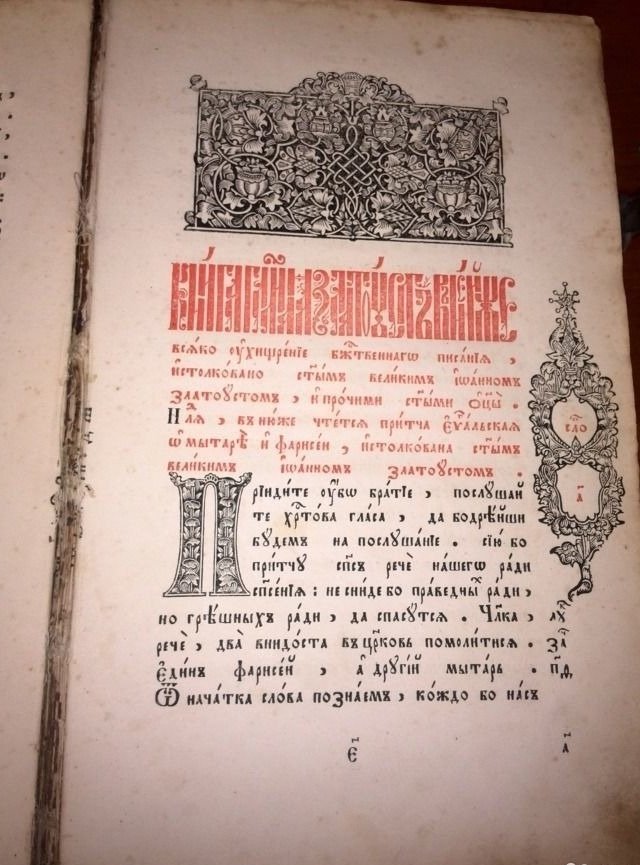 Кни́га гл҃емая Златоу́стъ в не́йже
всѧ́ко ᲂу҆хищре́нїе бж҃твеннагѡ писа́нїѧ ,
и҆столко́вано ст҃ы́мъ вели́кимъ і҆ѡа́нномъ
златоу́стомъ , и҆ про́чими ст҃ы́ми ѻ҆ц҃ы̀ .
Нл҃ѧ а҃ , въ ню́же чте́тсѧ при́тча є҆ѵⷢ҇альскаѧ
ѡ҆ мытарѣ̀ и҆ фарисе́и , и҆столко́вана ст҃ы́мъ
вели́кимъ і҆ѡа́нномъ златоу́стомъ .
Прїиди́те ᲂу҆́бѡ бра́тїе , послу́шай
те хрⷭ҇то́ва гла́са , да бодрѣ́йши
бу́демъ на послуша́нїе . сїю́ бо
при́тчу сп҃съ речѐ на́шегѡ ра́ди
сп҃се́нїѧ : не сни́де бо пра́ведныхъ ра́ди ,
но грѣ́шныхъ ра́ди , да спасу́тсѧ . Чл҃ка ,
речѐ , два̀ вни́доста въ цр҃ковь помоли́тисѧ .
є҆ди́нъ фарисе́й , а҆ дрꙋгі́й мы́тарь .
Ѿ нача́тка сло́ва позна́емъ , ко́ждо бо на́съ
сло
а҃
лꙋ
за҃
пд
є҃
а҃